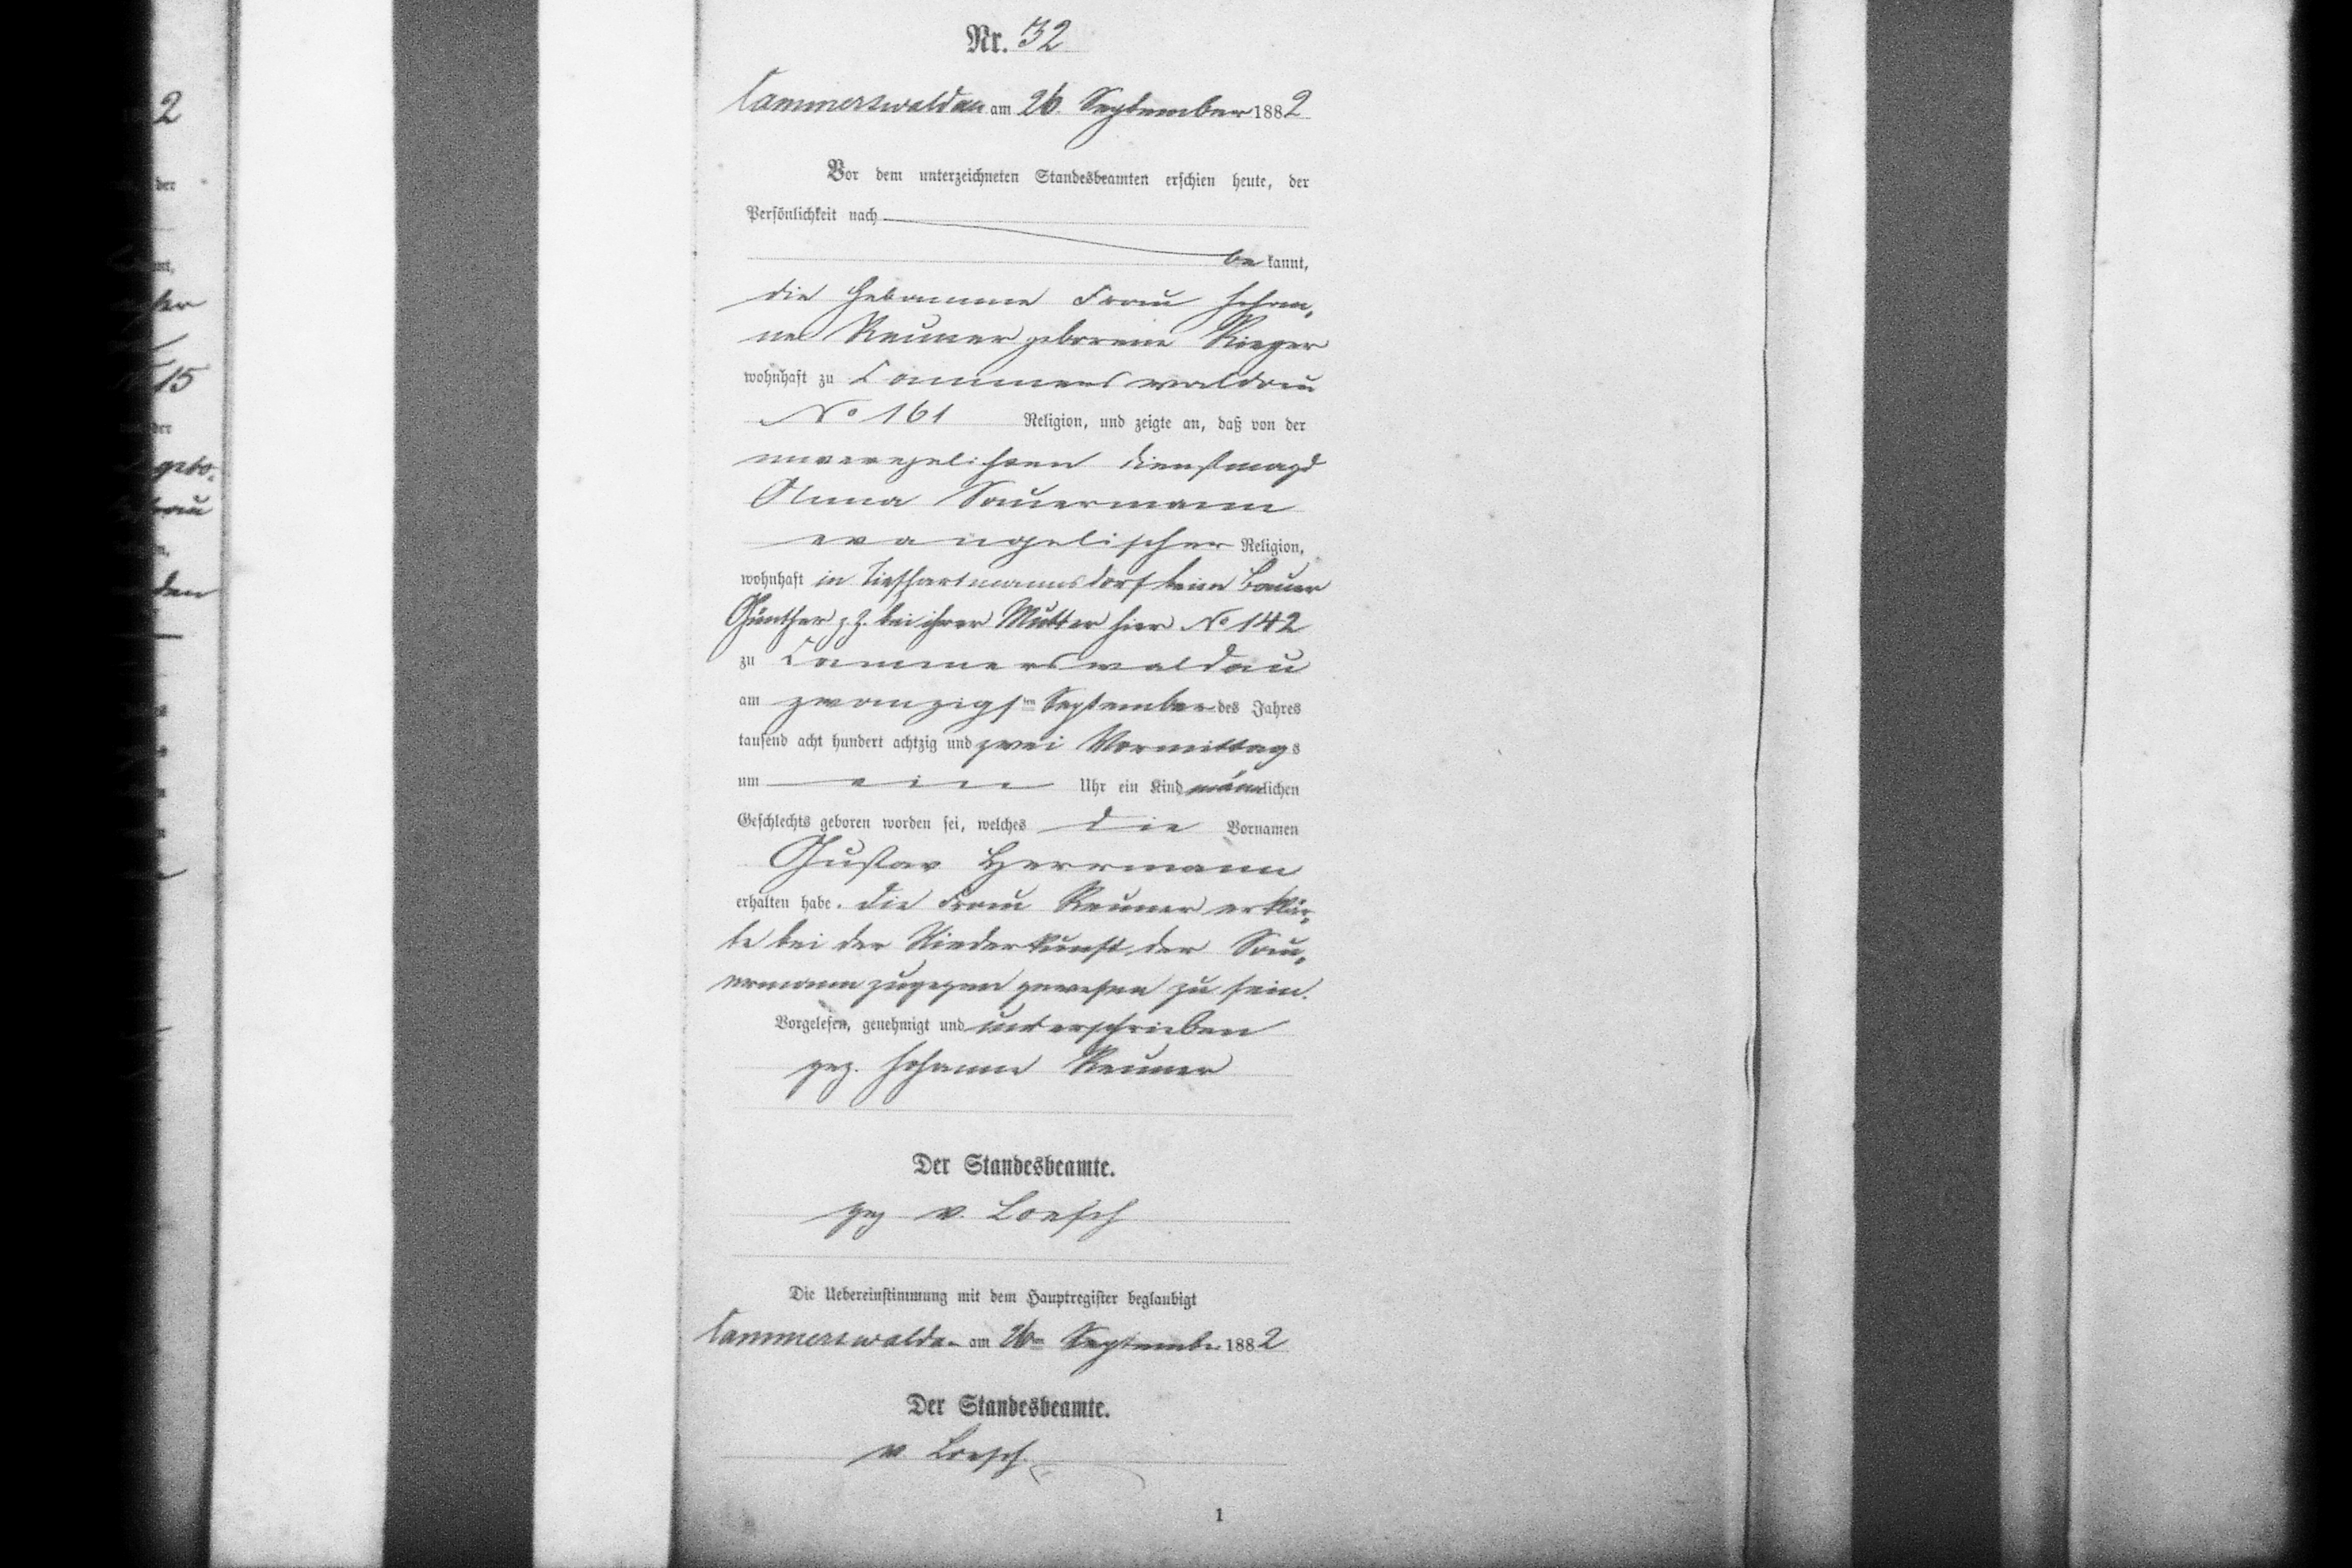 Nr. 32
Cammerswaldau am 26. September 1882
Vor dem unterzeichneten Standesbeamten erschien heute, der
Persönlichkeit nach
be kannt,
die Hebamme Frau Johan„
ne Reuner geborene Rieger
wohnhaft zu Cammerswaldau
No 161 Religion, und zeigte an, daß von der
unverehelichten Dienstmagd
Anna Sauermann
evangelischer Religion,
wohnhaft in Tiefhartmannsdorf beim Bauer
Günther z. Z. bei ihrer Mutter hier No 142
zu Cammerswaldau
am zwanzigsten September des Jahres
tausend acht hundert achtzig und zwei Vormittags
um ein Uhr ein Kind männlichen
Geschlechts geboren worden sei, welches die Vornamen
Gustav Herrmann
erhalten habe. Die Frau Reuner erklär„
te bei der Niederkunft der Sau„
ermann zugegen gewesen zu sein.
Vorgelesen, genehmigt und unterschrieben
gez. Johanne Reuner
Der Standesbeamte.
gez v. Loesch
Die Uebereinstimmung mit dem Hauptregister beglaubigt
Cammerswaldau am 26ten September 1882
Der Standesbeamte.
v. Loesch.
1